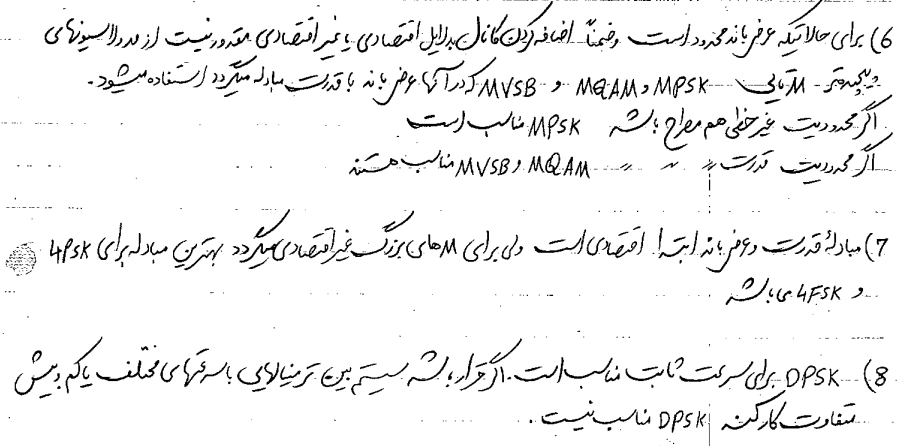 6) برای حالاتیکه عرض باند محدود است وضمناً اضافه کردن کانال بدلایل اقتصادی یا غیر اقتصادی مقدور نیست از مدولاسیونهای
پیچیده‌تر M تایی MPSK و MQAM و MVSB که در آنها عرض باند با قدرت مبادله میگردد استفاده میشود.
اگر محدودیت غیرخطی هم مطرح باشد MPSK مناسب است
اگر محدودیت قدرت " " " MQAM و MVSB مناسب هستند
7) مبادلهٔ قدرت وعرض باند ابتدا اقتصادی است ولی برای M های بزرگ غیراقتصادی میگردد بهترین مبادله برای 4PSK
و 4FSK می باشد
8) DPSK برای سرعت ثابت مناسب است. اگر قرار باشد سیستم بین ترمینالهایی با سرعتهای مختلف یا کم وبیش
متفاوت کار کند DPSK مناسب نیست.